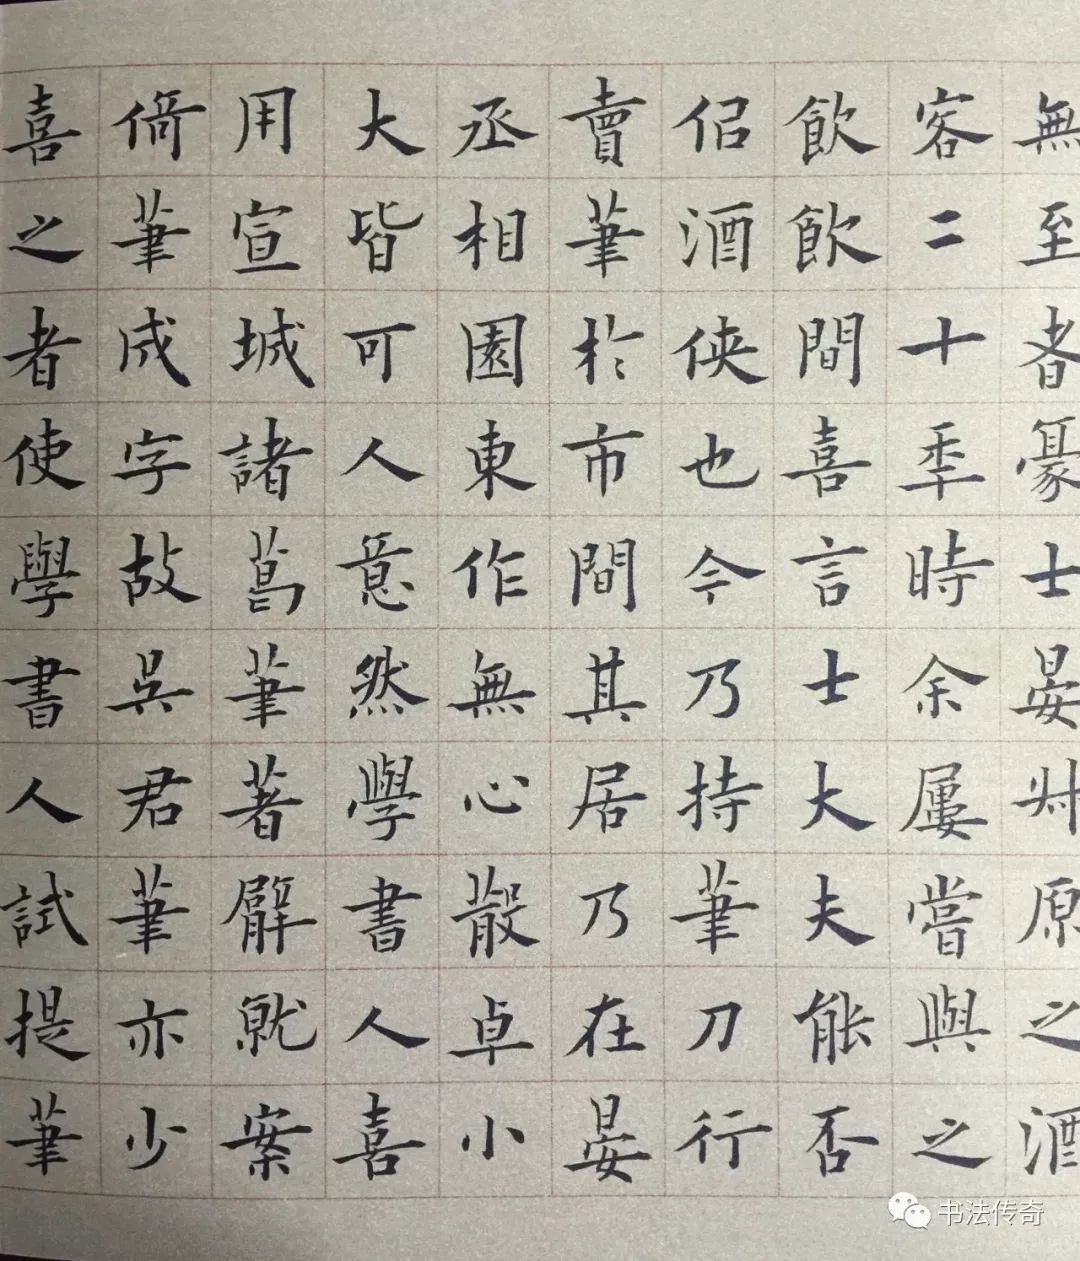 無至者豪士晏叔原之酒
客二十秊時余屢嘗與之
飲飲間喜言士大夫能否
佀酒俠也今乃持筆刀行
賣筆於市間其居乃在晏
丞相園東作無心散卓小
大皆可人意然學書人喜
用宣城諸葛筆著臂就案
倚筆成字故吳君筆亦少
喜之者使學書人試提筆
书法传奇